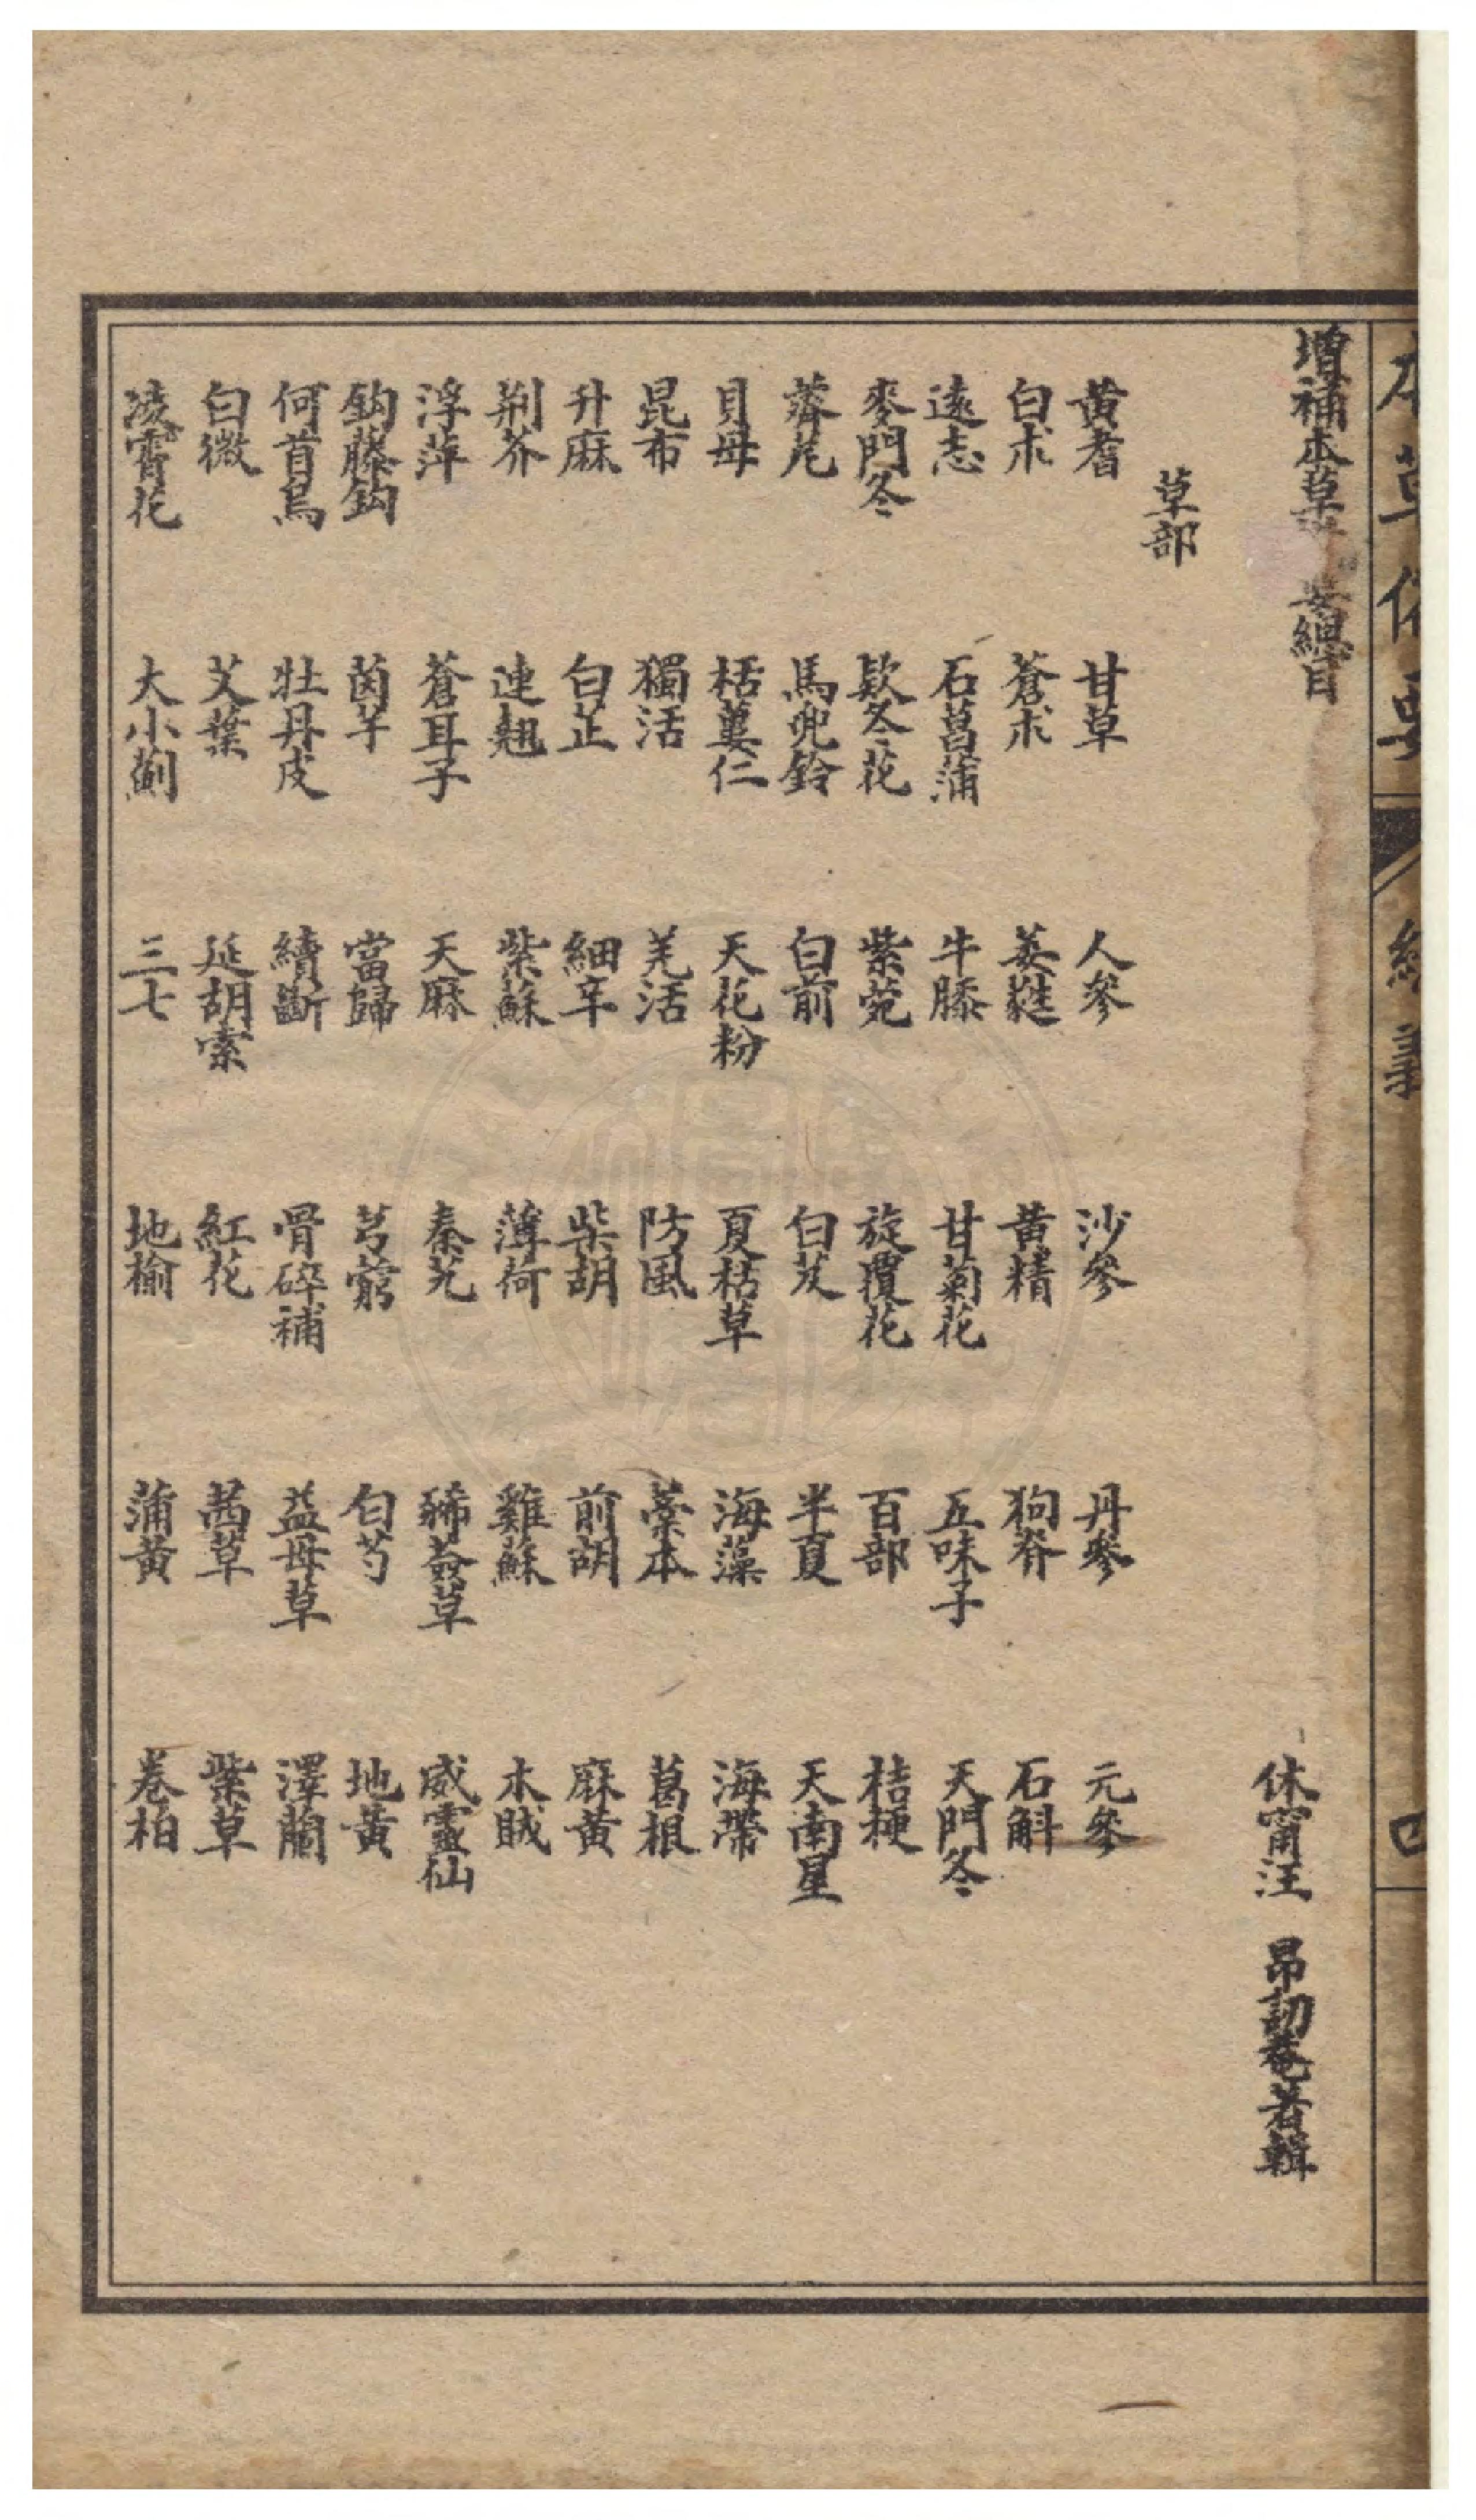 增補本草 要總目
休甯汪 昂訒菴著輯
草部
黃耆 甘草 人參 沙參 丹參 元參
白朮 蒼朮 萎蕤 黃精 狗脊 石斛
遠志 石菖蒲 牛膝 甘菊花 五味子 天門冬
麥門冬 款冬花 紫菀 旋覆花 百部 桔梗
薺苨 馬兜鈴 白前 白芨 半夏 天南星
貝母 栝蔞仁 天花粉 夏枯草 海藻 海帶
昆布 獨活 羌活 防風 藁本 葛根
升麻 白芷 細辛 柴胡 前胡 麻黃
荆芥 連翹 紫蘇 薄荷 雞蘇 木賊
浮萍 蒼耳子 天麻 秦艽 豨薟草 威靈仙
鈎藤鈎 茵芋 當歸 芎藭 白芍 地黃
何首烏 牡丹皮 續斷 骨碎補 益母草 澤蘭
白微 艾葉 延胡索 紅花 茜草 紫草
凌霄花 大小薊 三七 地榆 蒲黃 卷柏